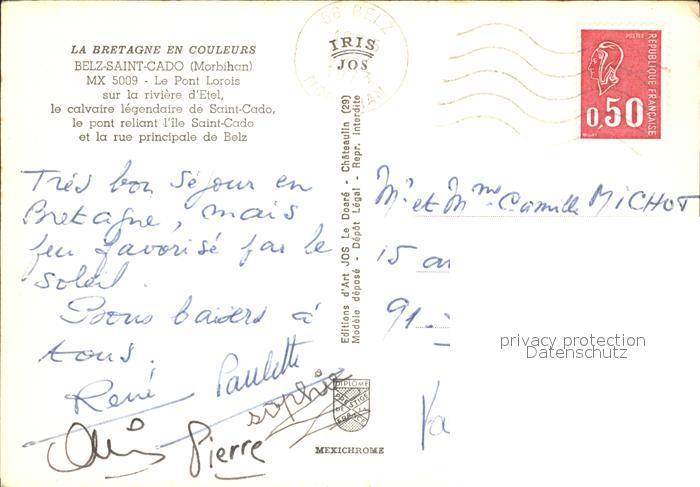 LA BRETAGNE EN COULEURS
BELZ-SAINT-CADO (Morbihan)
MX 5009 - Le Pont Lorois
sur la rivière d'Etel,
le calvaire légendaire de Saint-Cado,
le pont reliant l'île Saint-Cado
et la rue principale de Belz
56 BELZ
IRIS
JOS
MORBIHAN
POSTES
RÉPUBLIQUE FRANÇAISE
0,50
Editions d'Art JOS Le Doaré - Châteaulin (29)
Modèle déposé - Dépôt Légal - Repr. Interdite
Très bon séjour en
Bretagne, mais
peu favorisé par le
soleil.
Bons baisers à
tous.
René Paulette
Sophie
Pierre
Mr et Mme Camille MICHOT
15 a
91
privacy protection
Datenschutz
DIPLOME
MEXICHROME